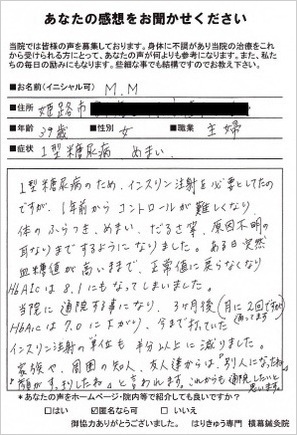 あなたの感想をお聞かせください
当院では皆様の声を募集しております。身体に不調があり当院の治療をこれ
から受けられる方にとって、あなたの声が何よりも参考になります。また、私た
ちの毎日の励みにもなります。些細な事でも結構ですのでお教え下さい。
■お名前(イニシャル可) M.M
■住所 姫路市
■年齢 39歳 ■性別 女 ■職業 主婦
■症状 1型糖尿病 めまい
1型糖尿病のため、インスリン注射を必要としてたの
ですが、1年前からコントロールが難しくなり、
体のふらつき、めまい、だるさ等、原因不明の
耳なりまでするようになりました。ある日突然
血糖値が高いままで、正常値に戻らなくなり
HbA1cは8.1にもなってしまいました。
当院に通院する事になり、3ヶ月後(月に2回ですが通ってます)
HbA1cは7.0に下がり、今まで打っていた
インスリン注射の単位も半分以上に減りました。
家族や、周囲の知人、友達からは「別人になったね」
「顔がすっきりしたね」と言われます。これからも通院したいと
思います。
*あなたの声をホームページ・院内等で紹介しても良いですか?
□はい ☑匿名なら可 □いいえ
御協力ありがとうございました。 はりきゅう専門 横幕鍼灸院